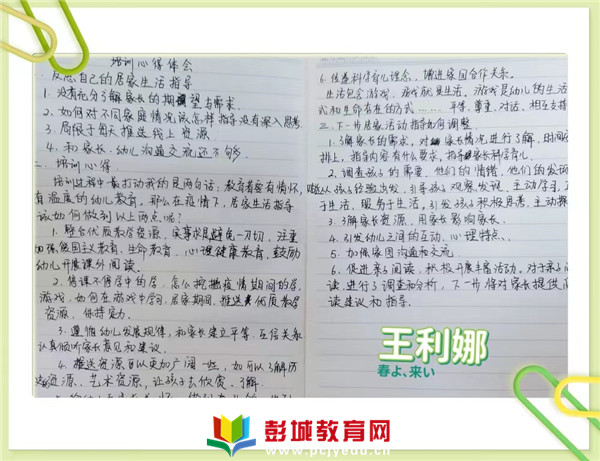 培训心得体会
一、反思自己的居家生活指导
1. 没有充分了解家长的期望与需求.
2. 如何对不同家庭情况该怎样指导没有深入思考
3. 局限于每天推送线上资源
4. 和家长、幼儿沟通交流还不够.
二、培训心得
培训过程中最打动我的是两句话:教育者要有情怀,
有温度的幼儿教育. 那么在疫情下,居家生活指导
该如何做到以上两点呢?
1. 整合优质教学资源,实事求是避免一刀切. 注重
加强爱国主义教育、生命教育、心理健康教育,鼓励
幼儿开展课外阅读.
2. 停课不停学中的居,怎么挖掘疫情期间的居,
游戏,如何在游戏中学习. 居家期间,推送优质教学
资源,保持互动.
3. 遵循幼儿发展规律,和家长建立平等、互信关系
认真倾听家长意见和建议.
4. 推送资源可以更加广阔一些,如可以了解历
史资源、艺术资源,让孩子去欣赏、了解.
6. 传播科学育儿理念,增进家园合作关系.
生活包含游戏,游戏就是生活,游戏是幼儿的生活
式和生命存在的方式……平等、尊重、对话、相互支持
三. 下一步居家活动指导如何调整
1. 了解家长的需求,对家长情况进行了解,时间安
排上,指导内容有什么要求,指导家长科学育儿.
2. 调查孩子的需要、他们的情绪,他们的发现
从孩子经验出发,引导孩子观察、发现、主动学习,
于生活,服务于生活,引发孩子积极思考,主动探
3. 了解家长资源,用家长影响家长.
4. 引发幼儿之间的互动、心理特点、
5. 加强家园沟通和交流
6. 促进亲子阅读,积极开展丰富活动,对于亲子阅
读进行了调查和分析,下一步将对家长提供阅
读建议和指导.
王利娜
春よ、来い
彭城教育网
www.pcjyedu.cn